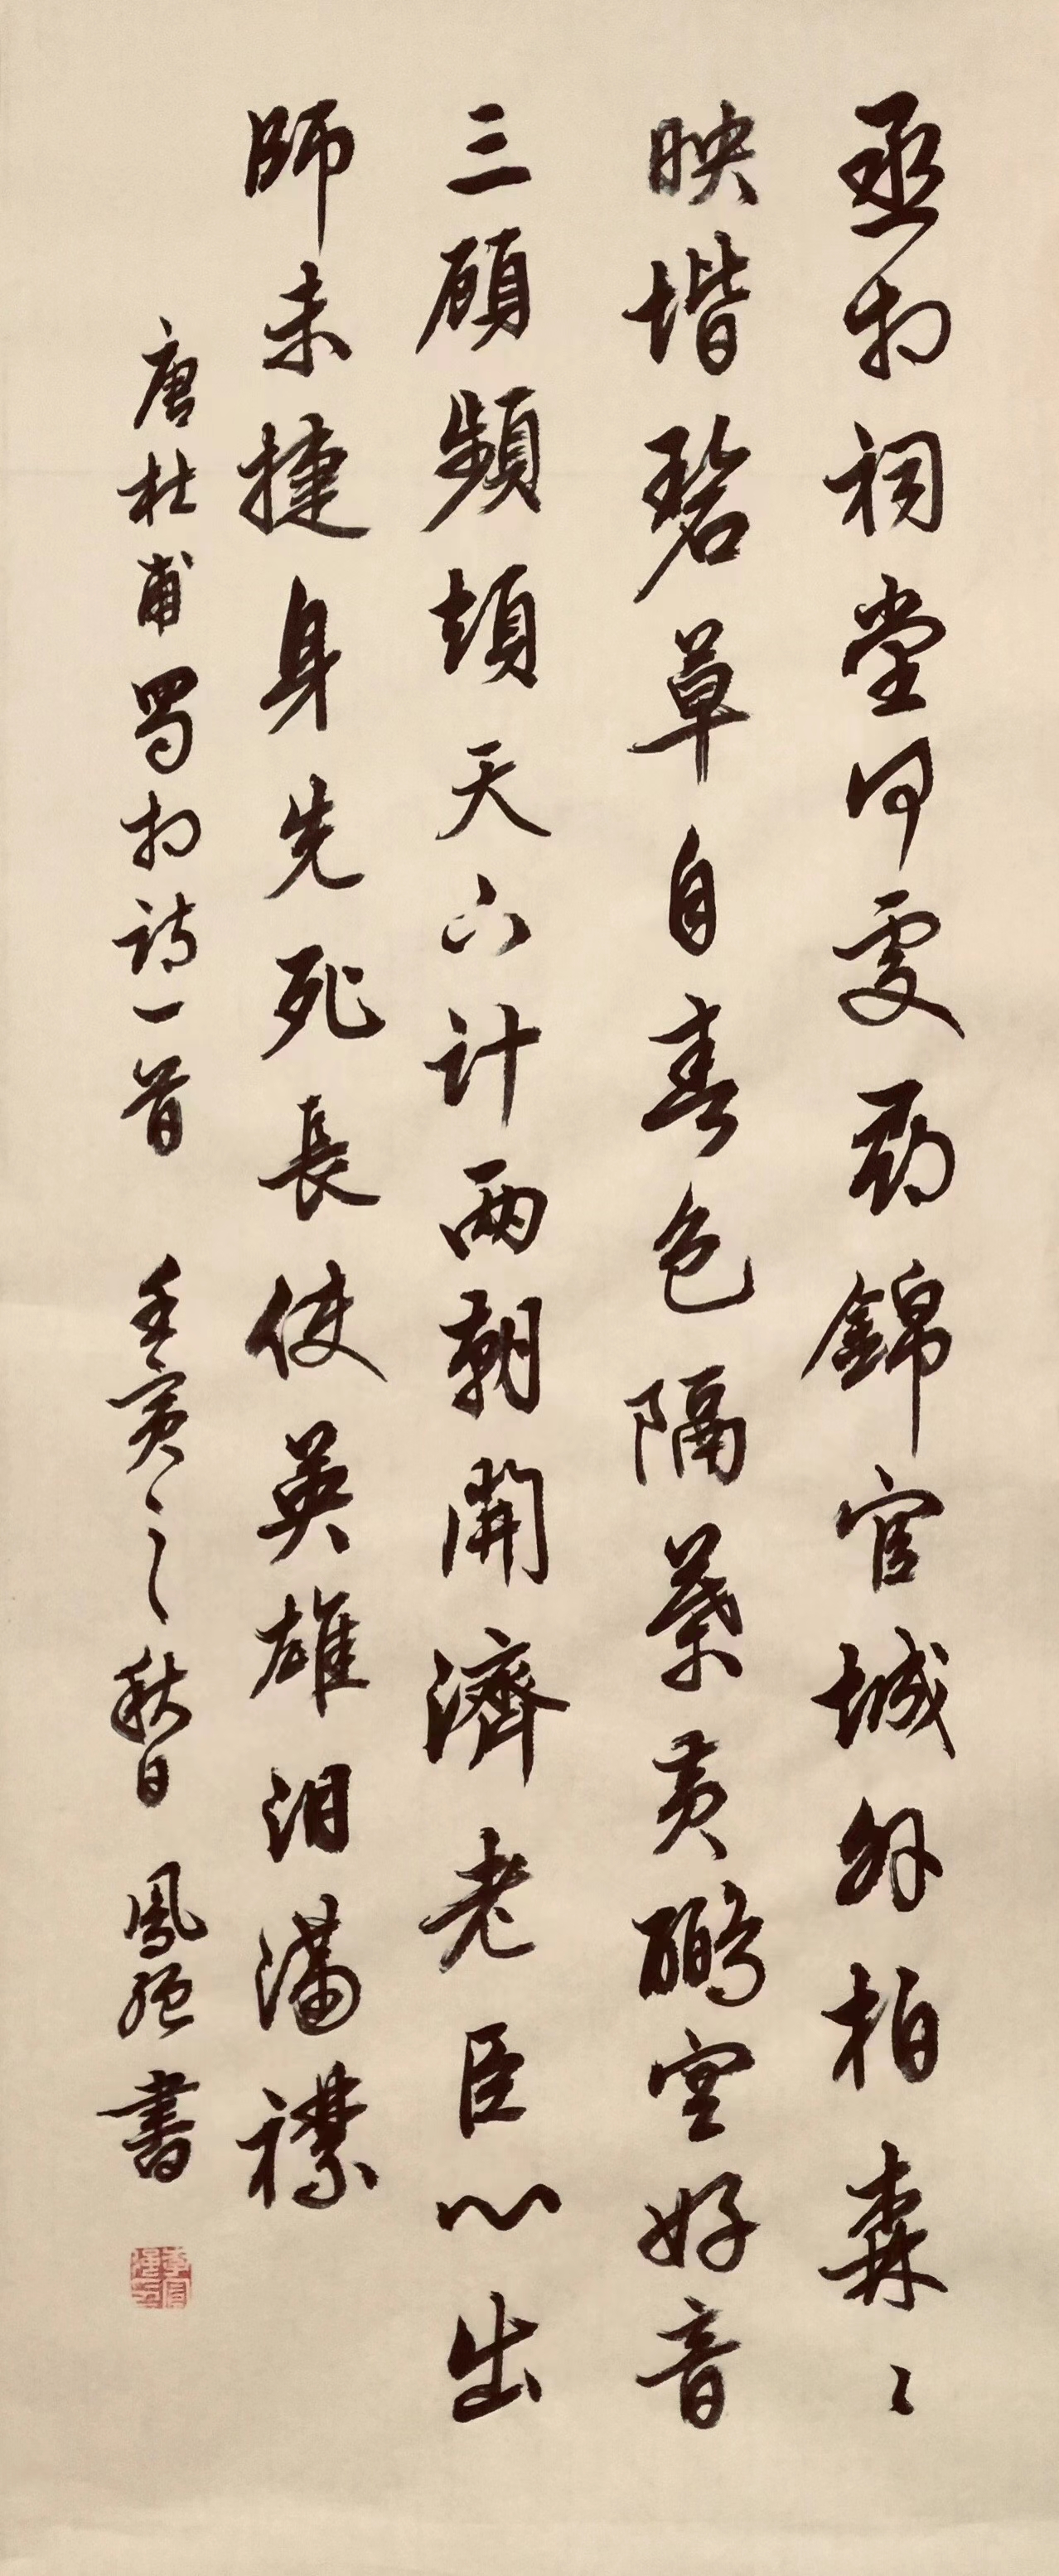 丞相祠堂何處尋錦官城外柏森〻
映堦碧草自春色隔葉黃鸝空好音
三顧頻煩天下計兩朝開濟老臣心出
師未捷身先死長使英雄泪滿襟
唐杜甫蜀相詩一首 壬寅之秋日 鳳強書